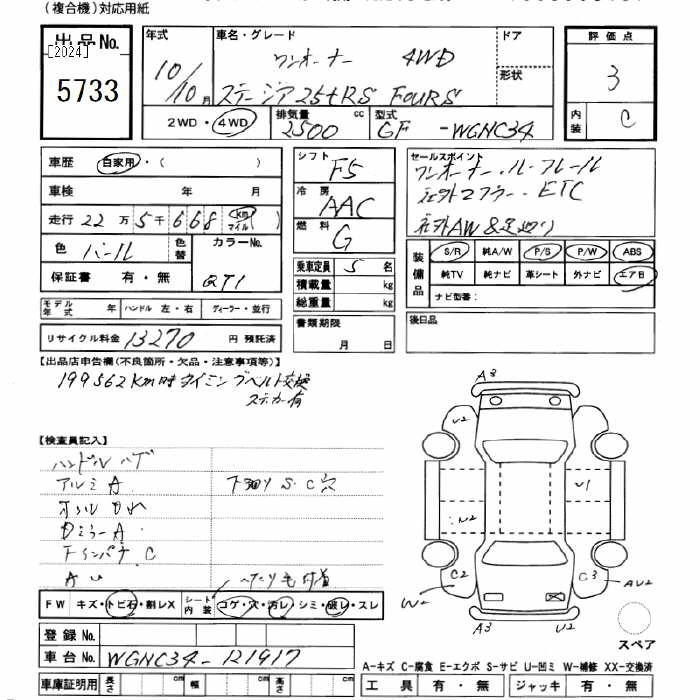 (複合機)対応用紙
出品No.
[2024]
5733
年式
10/10月
車名・グレード
ワンオーナー 4WD
ステージア25tRS FOURS
ドア
形状
2WD・4WD
排気量 cc
2500
型式
GF -WGNC34
評価点
3
内装
C
車歴 自家用・( )
車検 年 月
走行 22万5千668 km マイル ( )
色 パール
色替
カラーNo.
QT1
保証書 有・無
モデル年式 年
ハンドル 左・右
ディーラー・並行
リサイクル料金 13270 円 預託済
シフト F5
冷房 AAC
燃料 G
乗車定員 5 名
積載量 kg
総重量 kg
書類期限
月 日
セールスポイント
ワンオーナー・ルーフレール
社外マフラー・ETC
社外AW &足廻り
装備品
S/R 純A/W P/S P/W ABS
純TV 純ナビ 革シート 外ナビ エアB
ナビ型番:
後日品
【出品店申告欄(不良箇所・欠品・注意事項等)】
199562km時タイミングベルト交換
ステッカー有
【検査員記入】
ハンドルハゲ
アルミA
下廻りS.C穴
Dミラー A
A U
FW キズ・トビ石・割レX
シート内装 コゲ・穴・汚レ・シミ・破レ・スレ
登録No.
車台No. WGNC34-121917
車庫証明用 長さ cm 幅 cm 高さ cm
A3
U2
U2
U1
U2
C2
W2
C3
AU2
A3
U2
スペア
A-キズ C-腐食 E-エクボ S-サビ U-凹ミ W-補修 XX-交換済
工具 有・無 ジャッキ 有・無